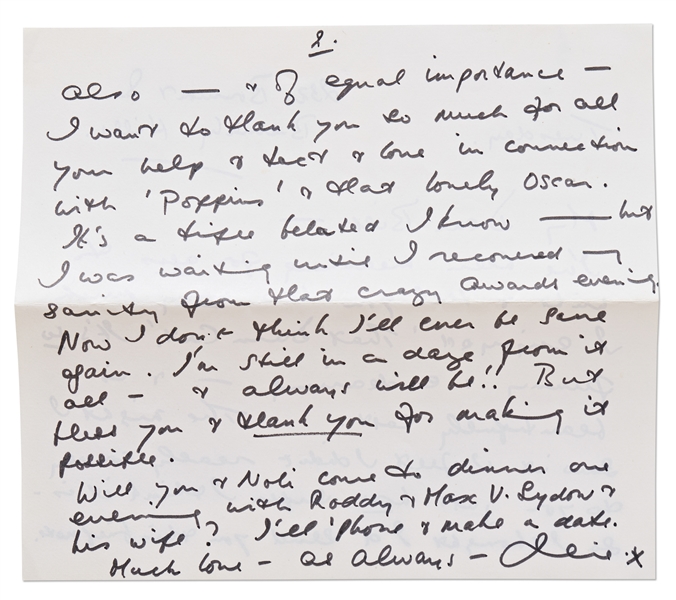 2.
also — & of equal importance —
I want to thank you so much for all
your help & tact & love in connection
with 'Poppins' & that lovely Oscar.
It's a trifle belated I know — but
I was waiting until I recovered —
sanity from that crazy awards evening.
Now I don't think I'll ever be sane
again. I'm still in a daze from it
all — & always will be!! But
bless you & thank you for making it
possible.
Will you & Noli come to dinner one
evening with Roddy & Max V. Sydow &
his wife? I'll 'phone & make a date.
Much love — as always — Julie x